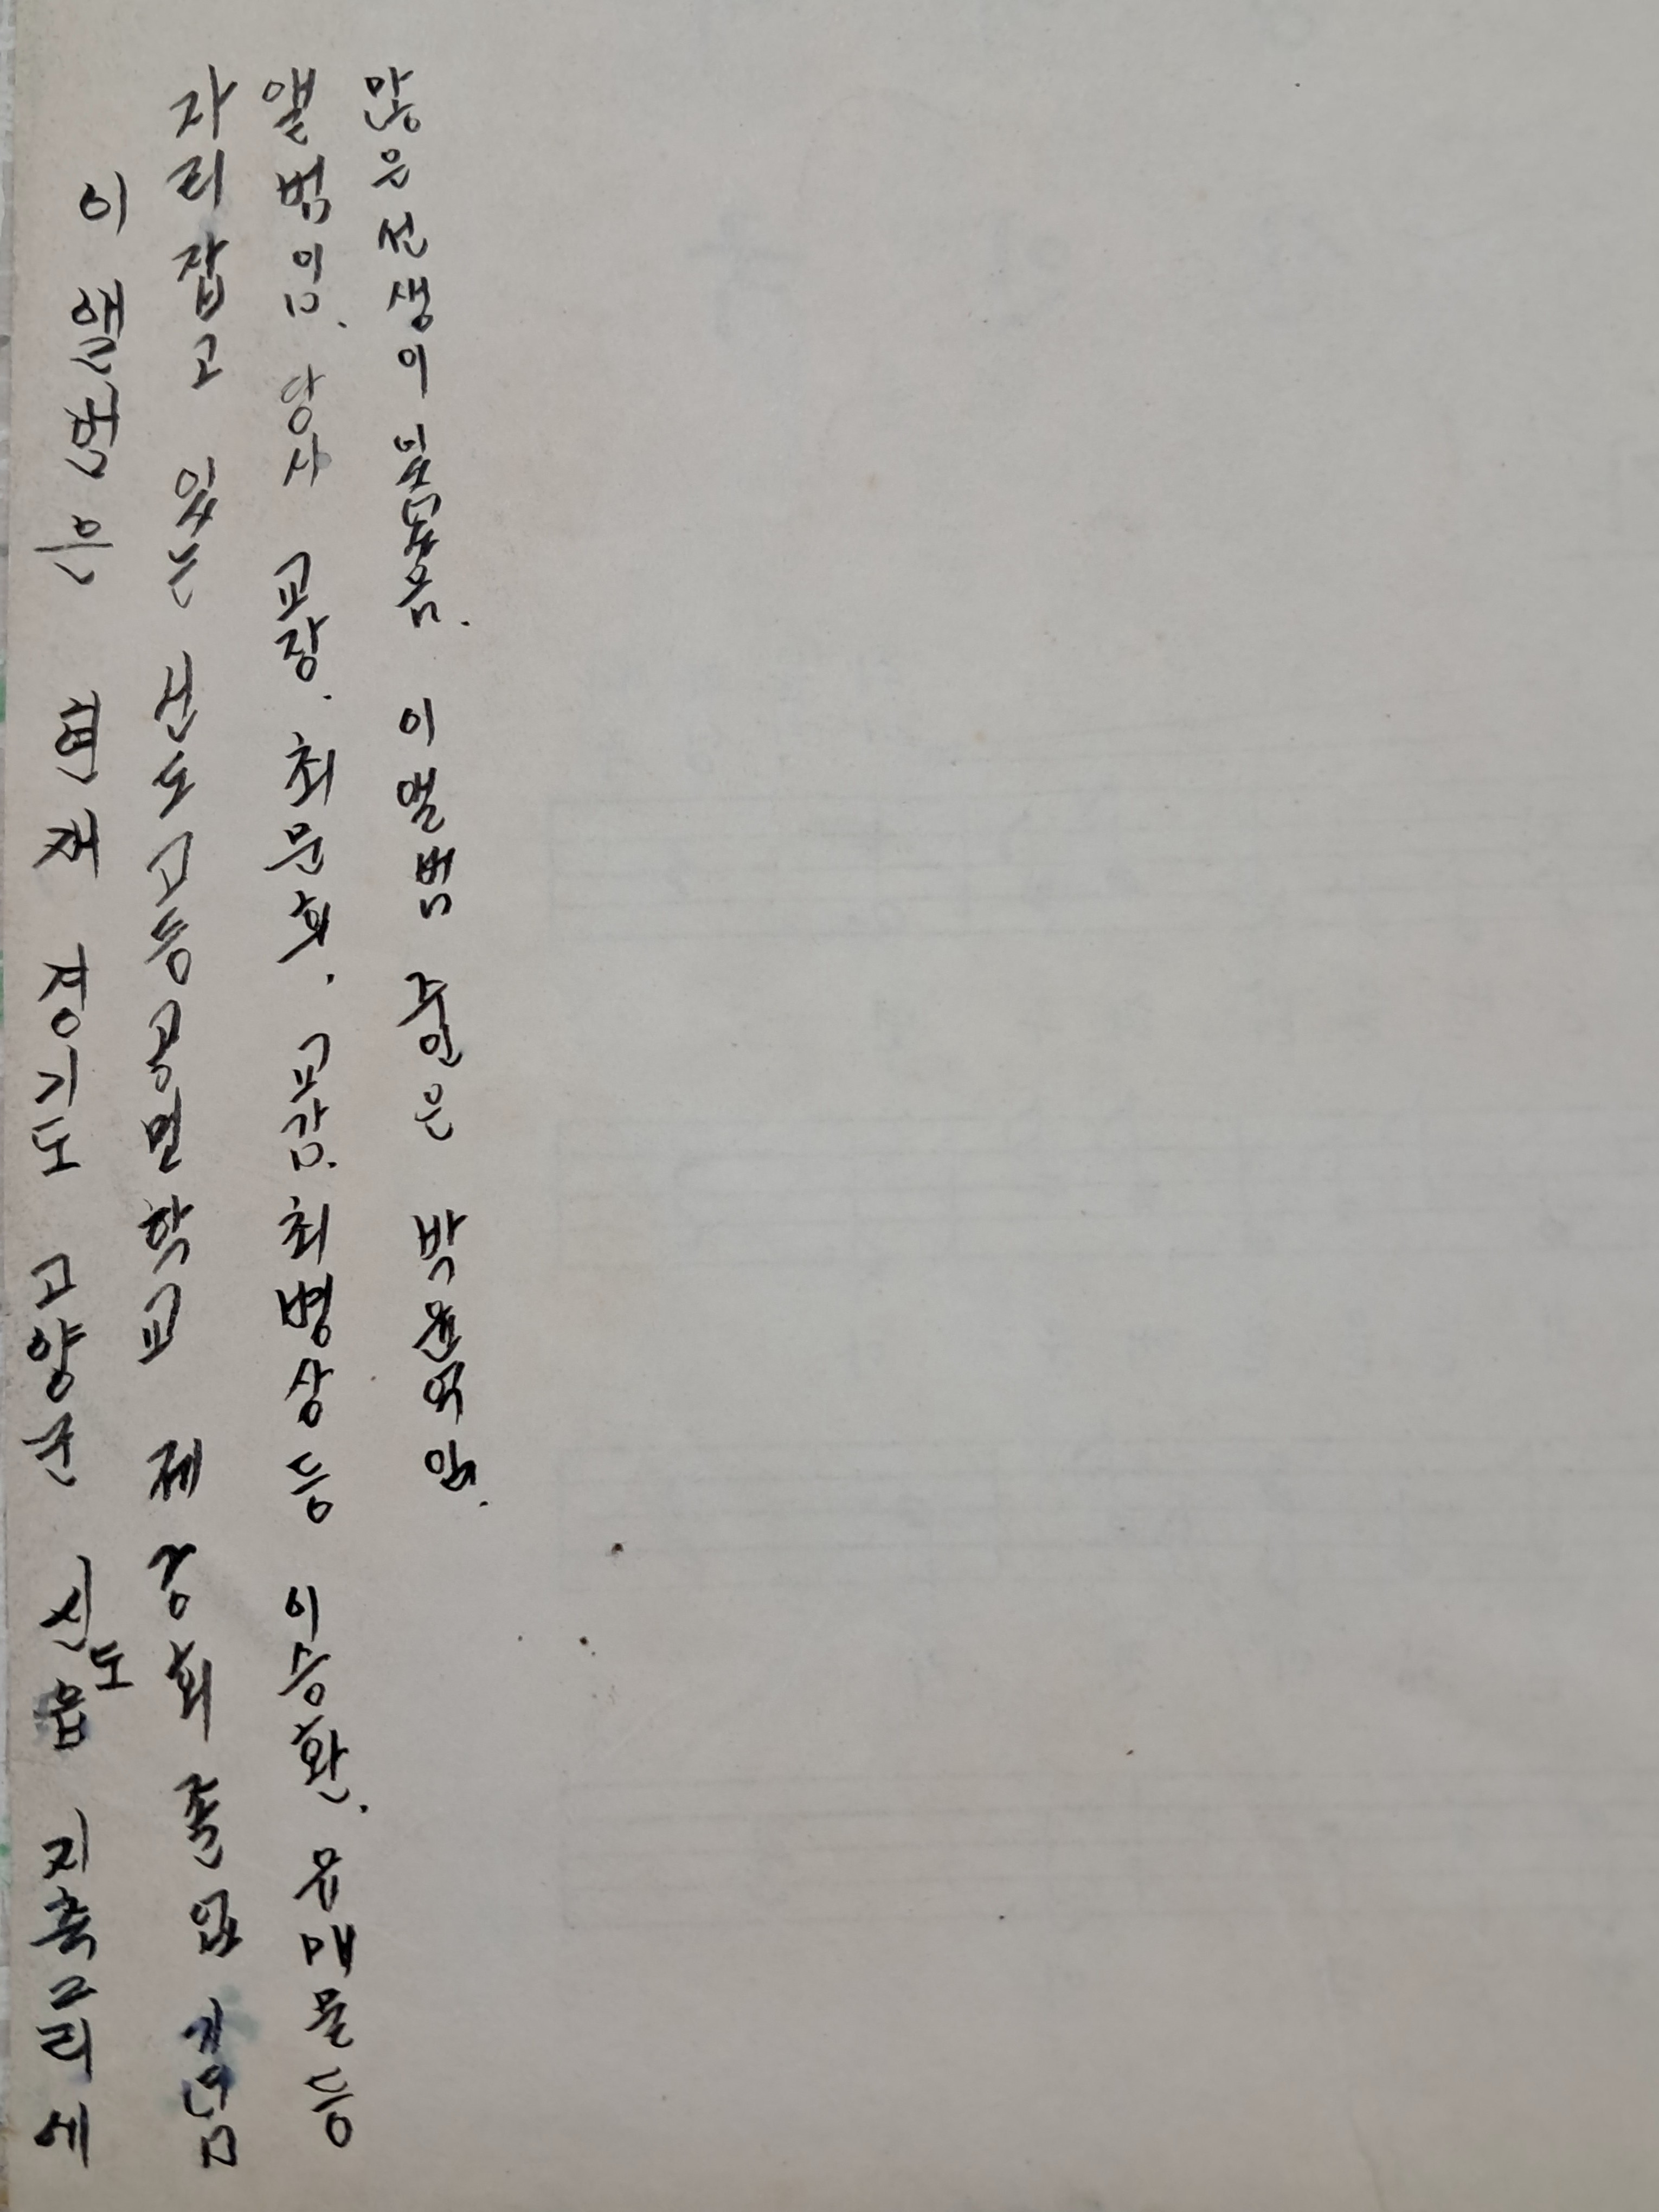 이 앨범은 현재 경기도 고양군 신도읍 지축리에
자리잡고 있는 신도고등공민학교 제 강회 졸업 기념
앨범임. 당사 교장. 최문희. 교감. 최병상 등 이승환. 유매물 등
많은 선생이 있었음. 이 앨범 주인은 박윤억임.